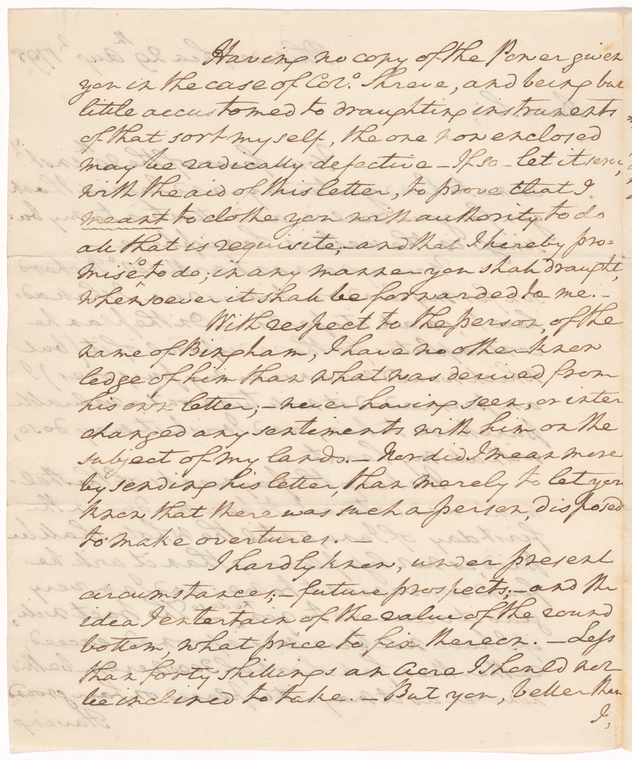 Having no copy of the Power given
you in the case of Colo. Shreve, and being but
little accustomed to draughting instruments
of that sort myself, the one now enclosed
may be radically defective – If so – let it serve,
with the aid of this letter, to prove that I
meant to clothe you with authority to do
all that is requisite; – and that I hereby pro=
mise so to do; in any manner you shall draught,
whensoever it shall be forwarded to me. –
With respect to the person, of the
name of Bingham, I have no other know
ledge of him than what was derived from
his own letter; – never having seen, or inter
changed any sentiments with him on the
subject of my lands. – Nor did I mean more
by sending his letter, than merely to let you
know that there was such a person, disposed
to make overtures. –
I hardly know, under present
circumstances; – future prospects; – and the
idea I entertain of the value of the round
bottom, what price to fix thereon. – Less
than forty shillings an Acre I should not
be inclined to take. – But you, better than
I,